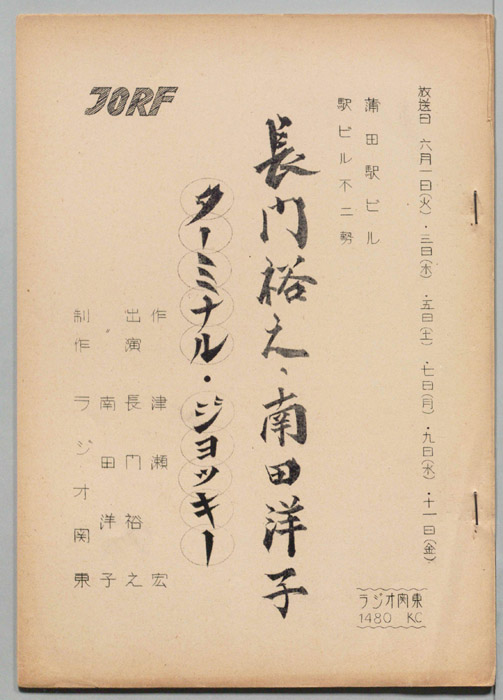 放送日 六月一日(火)・三日(木)・五日(土)・七日(月)・九日(水)・十一日(金)
蒲田駅ビル
駅ビル不二勢
長門裕之、南田洋子
ターミナル・ジョッキー
作 津瀬宏
出演 長門裕之
〃 南田洋子
制作 ラジオ関東
JORF
ラジオ関東
1480 KC